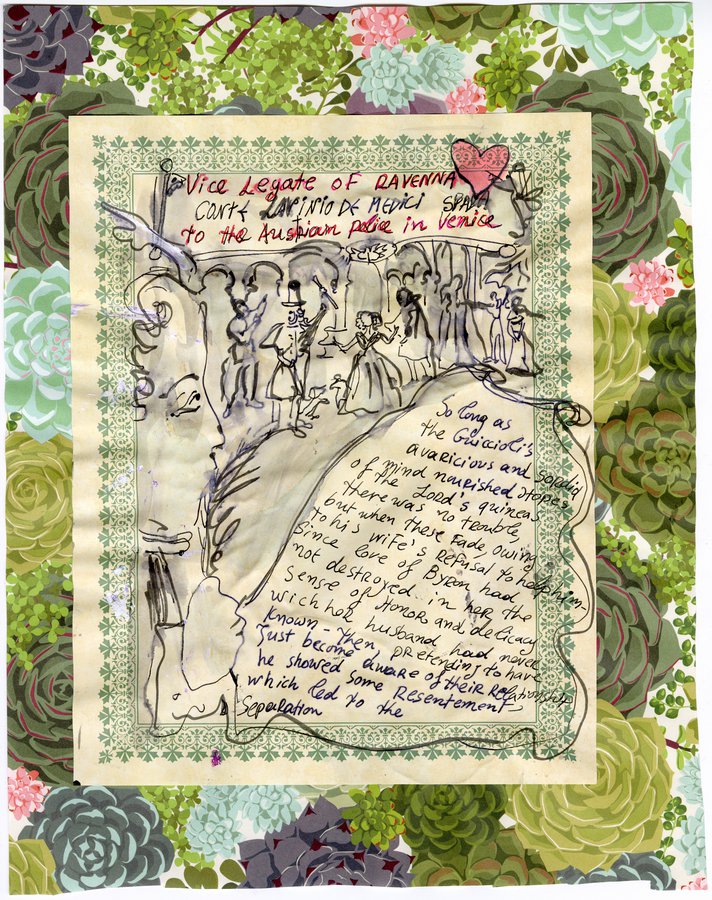 Vice Legate OF RAVENNA
CONTE LAVINIO DE MEDICI SPADA
to the Austrian Police in Venice
So long as
the Guiccioli's
avaricious and sordid
of mind nourished hopes
of the Lord's guineas
there was no trouble
but when these Fade, owing
to his wife's Refusal to help him
Since love of Byron had
not destroyed.. in her the
Sense of Honor and delicacy
wich her husband had never
known - then pretending to have
just become aware of their Relationship
he showed some Resentement
which led to the
Separation